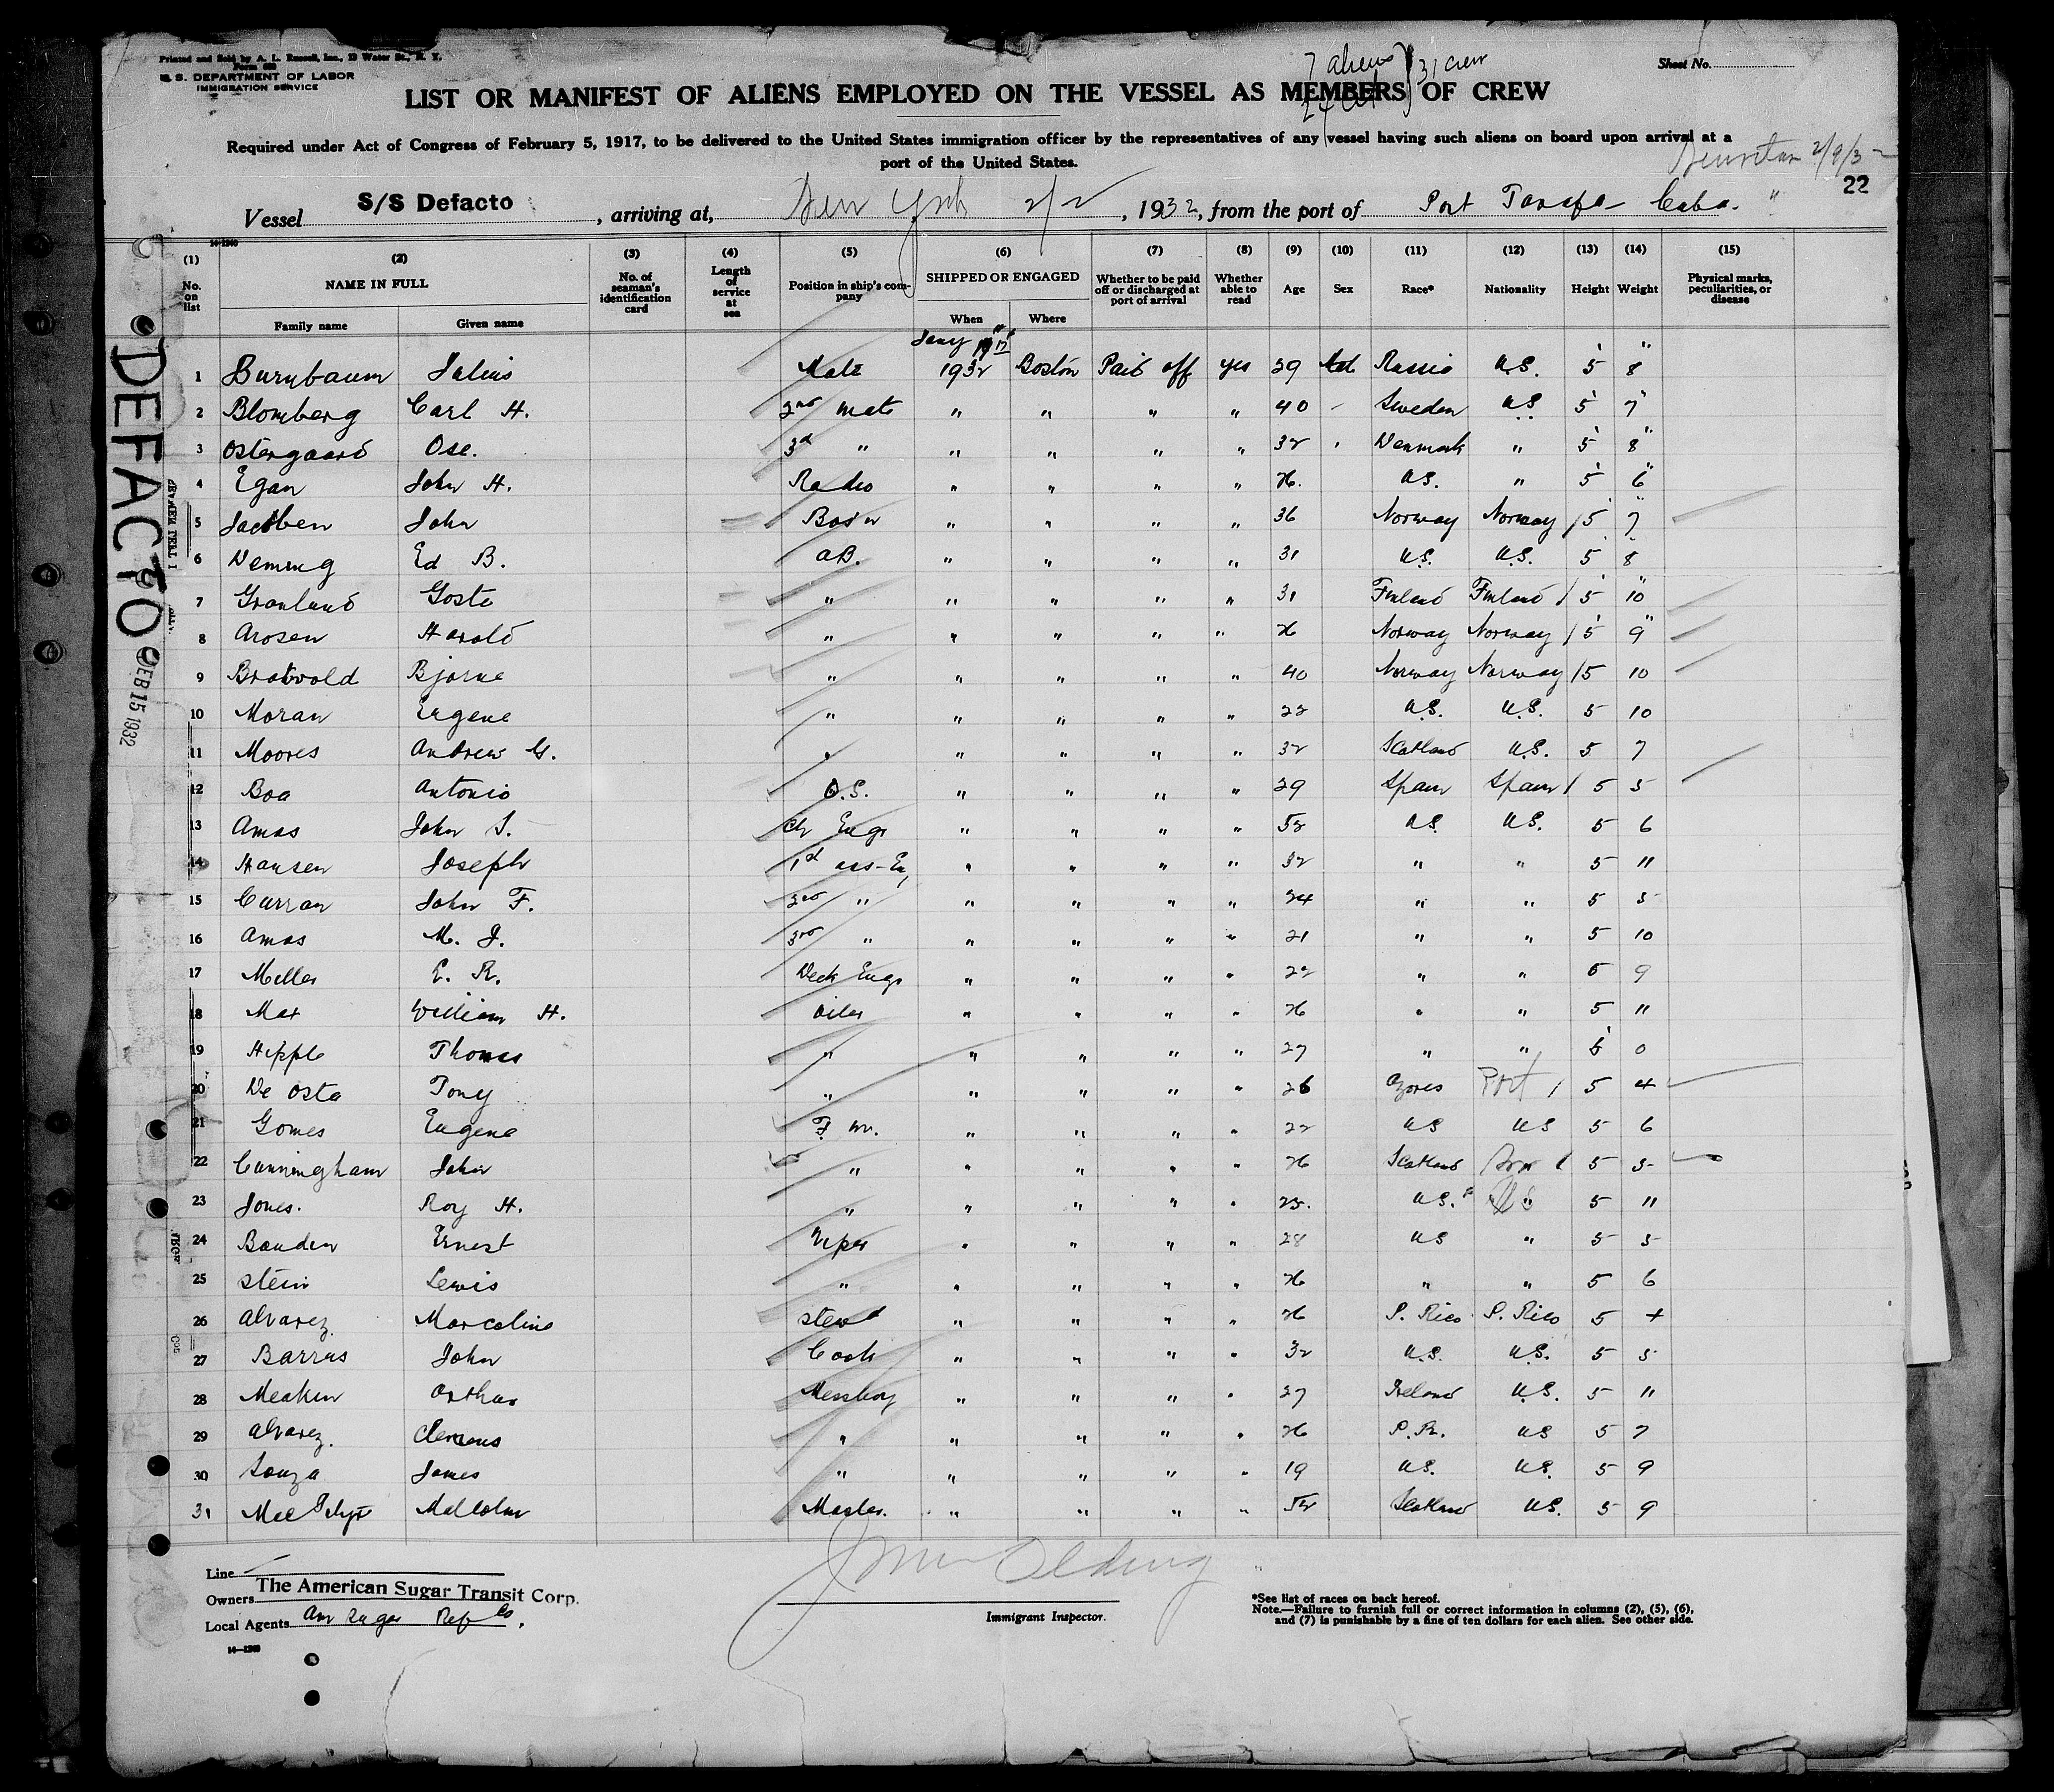 Printed and Sold by A. L. Russell, Inc., 19 Water St., N. Y.
Form 689
U. S. DEPARTMENT OF LABOR
IMMIGRATION SERVICE
7 aliens
31 crew
Sheet No.
LIST OR MANIFEST OF ALIENS EMPLOYED ON THE VESSEL AS MEMBERS OF CREW
Required under Act of Congress of February 5, 1917, to be delivered to the United States immigration officer by the representatives of any vessel having such aliens on board upon arrival at a
port of the United States.
2/9/32
22
Vessel S/S Defacto, arriving at, New York 2/2, 1932, from the port of Port Tarafa Cuba.
(1) (2) (3) (4) (5) (6) (7) (8) (9) (10) (11) (12) (13) (14) (15)
No. on list NAME IN FULL Family name Given name No. of seaman's identification card Length of service at sea Position in ship's company SHIPPED OR ENGAGED When Where Whether to be paid off or discharged at port of arrival Whether able to read Age Sex Race* Nationality Height Weight Physical marks, peculiarities, or disease
1 Burnbaum Julius Mate Jany 1932 Boston Paid off yes 29 Russia U.S. 5 8
2 Blomberg Carl H. 2nd mate " " " " 40 Sweden U.S. 5 7
3 Ostergaard Ose. 3d " " " " " 32 Denmark " 5 8
4 Egan John H. Radio " " " " 26. U.S. " 5 6
5 Jacobsen John Bos'n " " " " 36 Norway Norway / 5 7
6 Deming Ed B. AB. " " " " 31 U.S. U.S. 5 8
7 Granlund Gosta " " " " " 31 Finland Finland / 5 10
8 Arosen Harold " " " " " 26 Norway Norway / 5 9
9 Bratvold Bjarne " " " " " 40 Norway Norway / 5 10
10 Moran Eugene " " " " " 22 U.S. U.S. 5 10
11 Moores Andrew G. " " " " " 32 Scotland U.S. 5 7
12 Boa Antonio O.S. " " " " 29 Spain Spain / 5 5
13 Amos John S. Ch Engr " " " " 52 U.S. U.S. 5 6
14 Hansen Joseph 1st ass-En " " " " 32 " " 5 11
15 Curran John F. 2nd " " " " " 24 " " 5 5
16 Amos M. J. 3rd " " " " " 21 " " 5 10
17 Miller E. R. Deck Engr " " " " 22 " " 5 9
18 Max William H. Oiler " " " " 26 " " 5 11
19 Hipple Thomas " " " " " 27 " " 6 0
20 De Osta Tony " " " " " 26 Azores Port / 5 4
21 Gomes Eugene F. m. " " " " 22 US US 5 6
22 Cunningham John " " " " " 26 Scotland 5 5
23 Jones. Roy H. " " " " " 25. U.S. 5 11
24 Bauden Ernest Wiper " " " " 28 US " 5 5
25 Stein Lewis " " " " " 26 " " 5 6
26 Alvarez Marcelino Stew'd " " " " 26 P. Rico P. Rico 5 4
27 Barrus John Cook " " " " 32 U.S. U.S. 5 5
28 Meakin Arthur Messboy " " " " 27 Ireland U.S. 5 11
29 Alvarez. Clemens " " " " " 26 P.R. US 5 7
30 Souza James " " " " " 19 U.S. U.S. 5 9
31 MacIntyre Malcolm Master. " " " " 52 Scotland U.S. 5 9
DEFACTO
FEB 15 1932
Line
Owners The American Sugar Transit Corp.
Local Agents Am Sugar Ref Co.
Immigrant Inspector.
*See list of races on back hereof.
Note.—Failure to furnish full or correct information in columns (2), (5), (6),
and (7) is punishable by a fine of ten dollars for each alien. See other side.